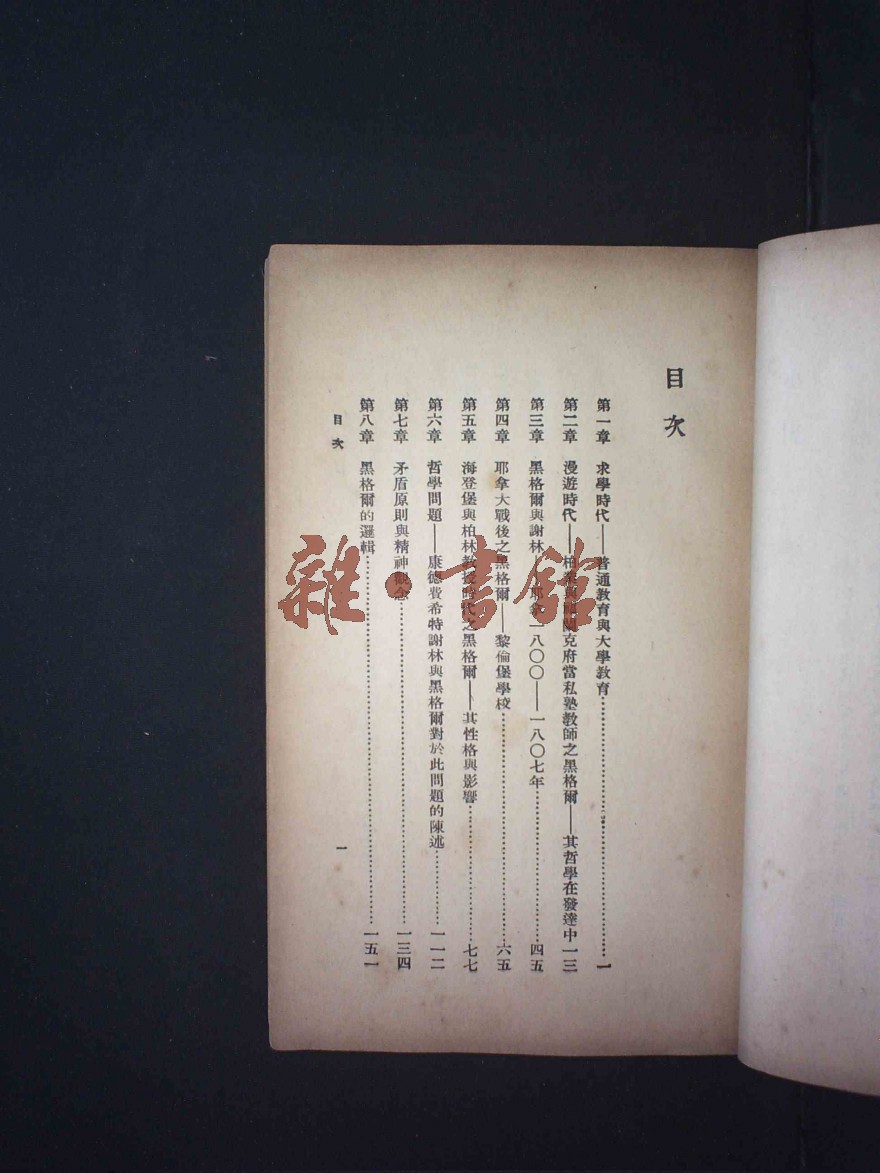 目次
第一章 求學時代——普通教育與大學教育…………一
第二章 漫遊時代——柏 與 蘭克府當私塾教師之黑格爾——其哲學在發達中一三
第三章 黑格爾與謝林——耶拿一八〇〇——一八〇七年…………四五
第四章 耶拿大戰後之黑格爾——黎倫堡學校…………六五
第五章 海登堡與柏林教授時代之黑格爾——其性格與影響…………七七
第六章 哲學問題——康德費希特謝林與黑格爾對於此問題的陳述…………一一二
第七章 矛盾原則與精神觀念…………一三四
第八章 黑格爾的邏輯…………一五一
目次
一
雜·書館